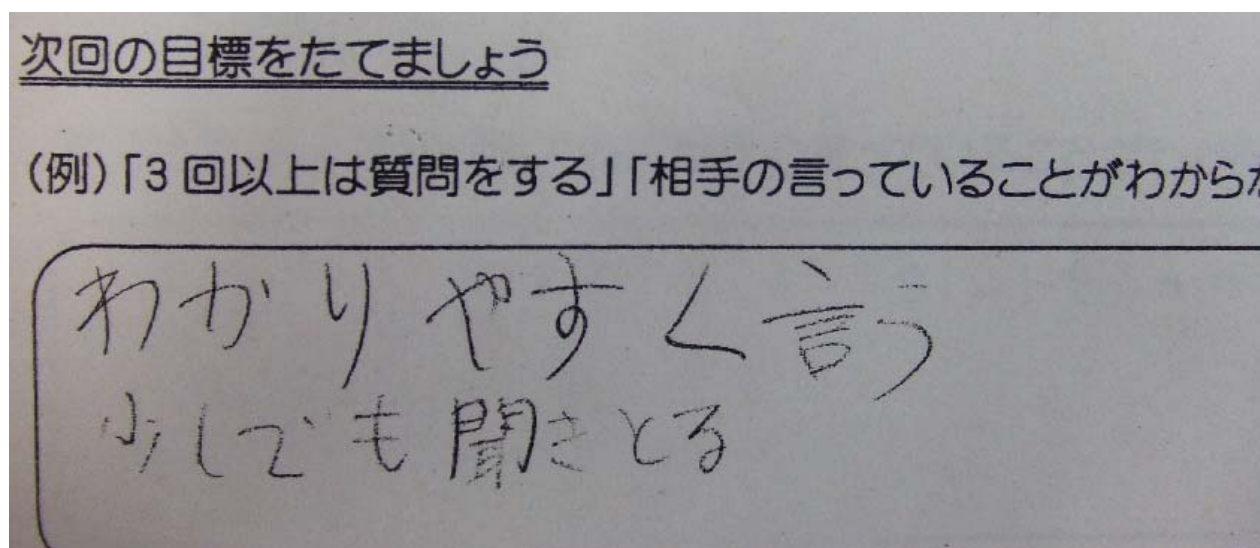 次回の目標をたてましょう
(例)「3回以上は質問をする」「相手の言っていることがわからな
わかりやすく言う
少しでも聞きとる